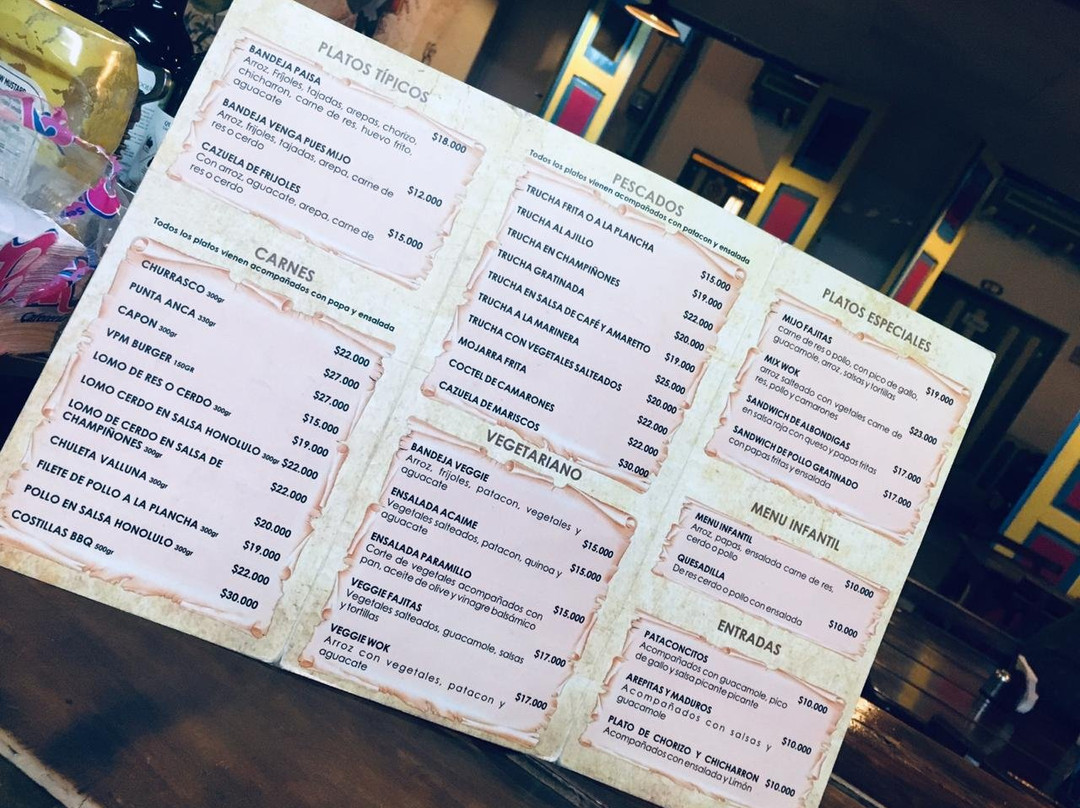 PLATOS TÍPICOS
BANDEJA PAISA
Arroz. Fríjoles, tajadas, arepas, chorizo,
chicharron, carne de res, huevo frito,
aguacate
$18.000
BANDEJA VENGA PUES MIJO
Arroz, frijoles, tajadas, arepa, carne de
res o cerdo
$12.000
CAZUELA DE FRIJOLES
Con arroz, aguacate, arepa, carne de
res o cerdo
$15.000
CARNES
Todos los platos vienen acompañados con papa y ensalada
CHURRASCO 300gr $22.000
PUNTA ANCA 330gr $27.000
CAPON 300gr $27.000
VPM BURGER 150GR $15.000
LOMO DE RES O CERDO 300gr $19.000
LOMO CERDO EN SALSA HONOLULO 300gr $22.000
LOMO DE CERDO EN SALSA DE
CHAMPIÑONES 300gr $22.000
CHULETA VALLUNA 300gr $20.000
FILETE DE POLLO A LA PLANCHA 300gr $19.000
POLLO EN SALSA HONOLULO 300gr $22.000
COSTILLAS BBQ 500gr $30.000
PESCADOS
Todos los platos vienen acompañados con patacon y ensalada
TRUCHA FRITA O A LA PLANCHA $15.000
TRUCHA AL AJILLO $19.000
TRUCHA EN CHAMPIÑONES $22.000
TRUCHA GRATINADA $20.000
TRUCHA EN SALSA DE CAFÉ Y AMARETTO $19.000
TRUCHA A LA MARINERA $25.000
TRUCHA CON VEGETALES SALTEADOS $20.000
MOJARRA FRITA $22.000
COCTEL DE CAMARONES $22.000
CAZUELA DE MARISCOS $30.000
VEGETARIANO
BANDEJA VEGGIE
Arroz, frijoles, patacon, vegetales y
aguacate
$15.000
ENSALADA ACAIME
Vegetales salteados, patacon, quinoa y
aguacate
$15.000
ENSALADA PARAMILLO
Corte de vegetales acompañados con
pan, aceite de olive y vinagre balsámico
$15.000
VEGGIE FAJITAS
Vegetales salteados, guacamole, salsas
y tortillas
$17.000
VEGGIE WOK
Arroz con vegetales, patacon y
aguacate
$17.000
PLATOS ESPECIALES
MIJO FAJITAS
carne de res o pollo, con pico de gallo,
guacamole, arroz, salsas y tortillas
$19.000
MIX WOK
arroz salteado con vgetales carne de
res, pollo y camarones
$23.000
SANDWICH DE ALBONDIGAS
en salsa roja con queso y papas fritas
$17.000
SANDWICH DE POLLO GRATINADO
con papas fritas y ensalada
$17.000
MENU INFANTIL
MENU INFANTIL
Arroz, papas, ensalada carne de res,
cerdo o pollo
$10.000
QUESADILLA
De res cerdo o pollo con ensalada
$10.000
ENTRADAS
PATACONCITOS
Acompañados con guacamole, pico
de gallo y salsa picante picante
$10.000
AREPITAS Y MADUROS
Acompañados con salsas y
guacamole
$10.000
PLATO DE CHORIZO Y CHICHARRON
Acompañados con ensalada y Limón
$10.000